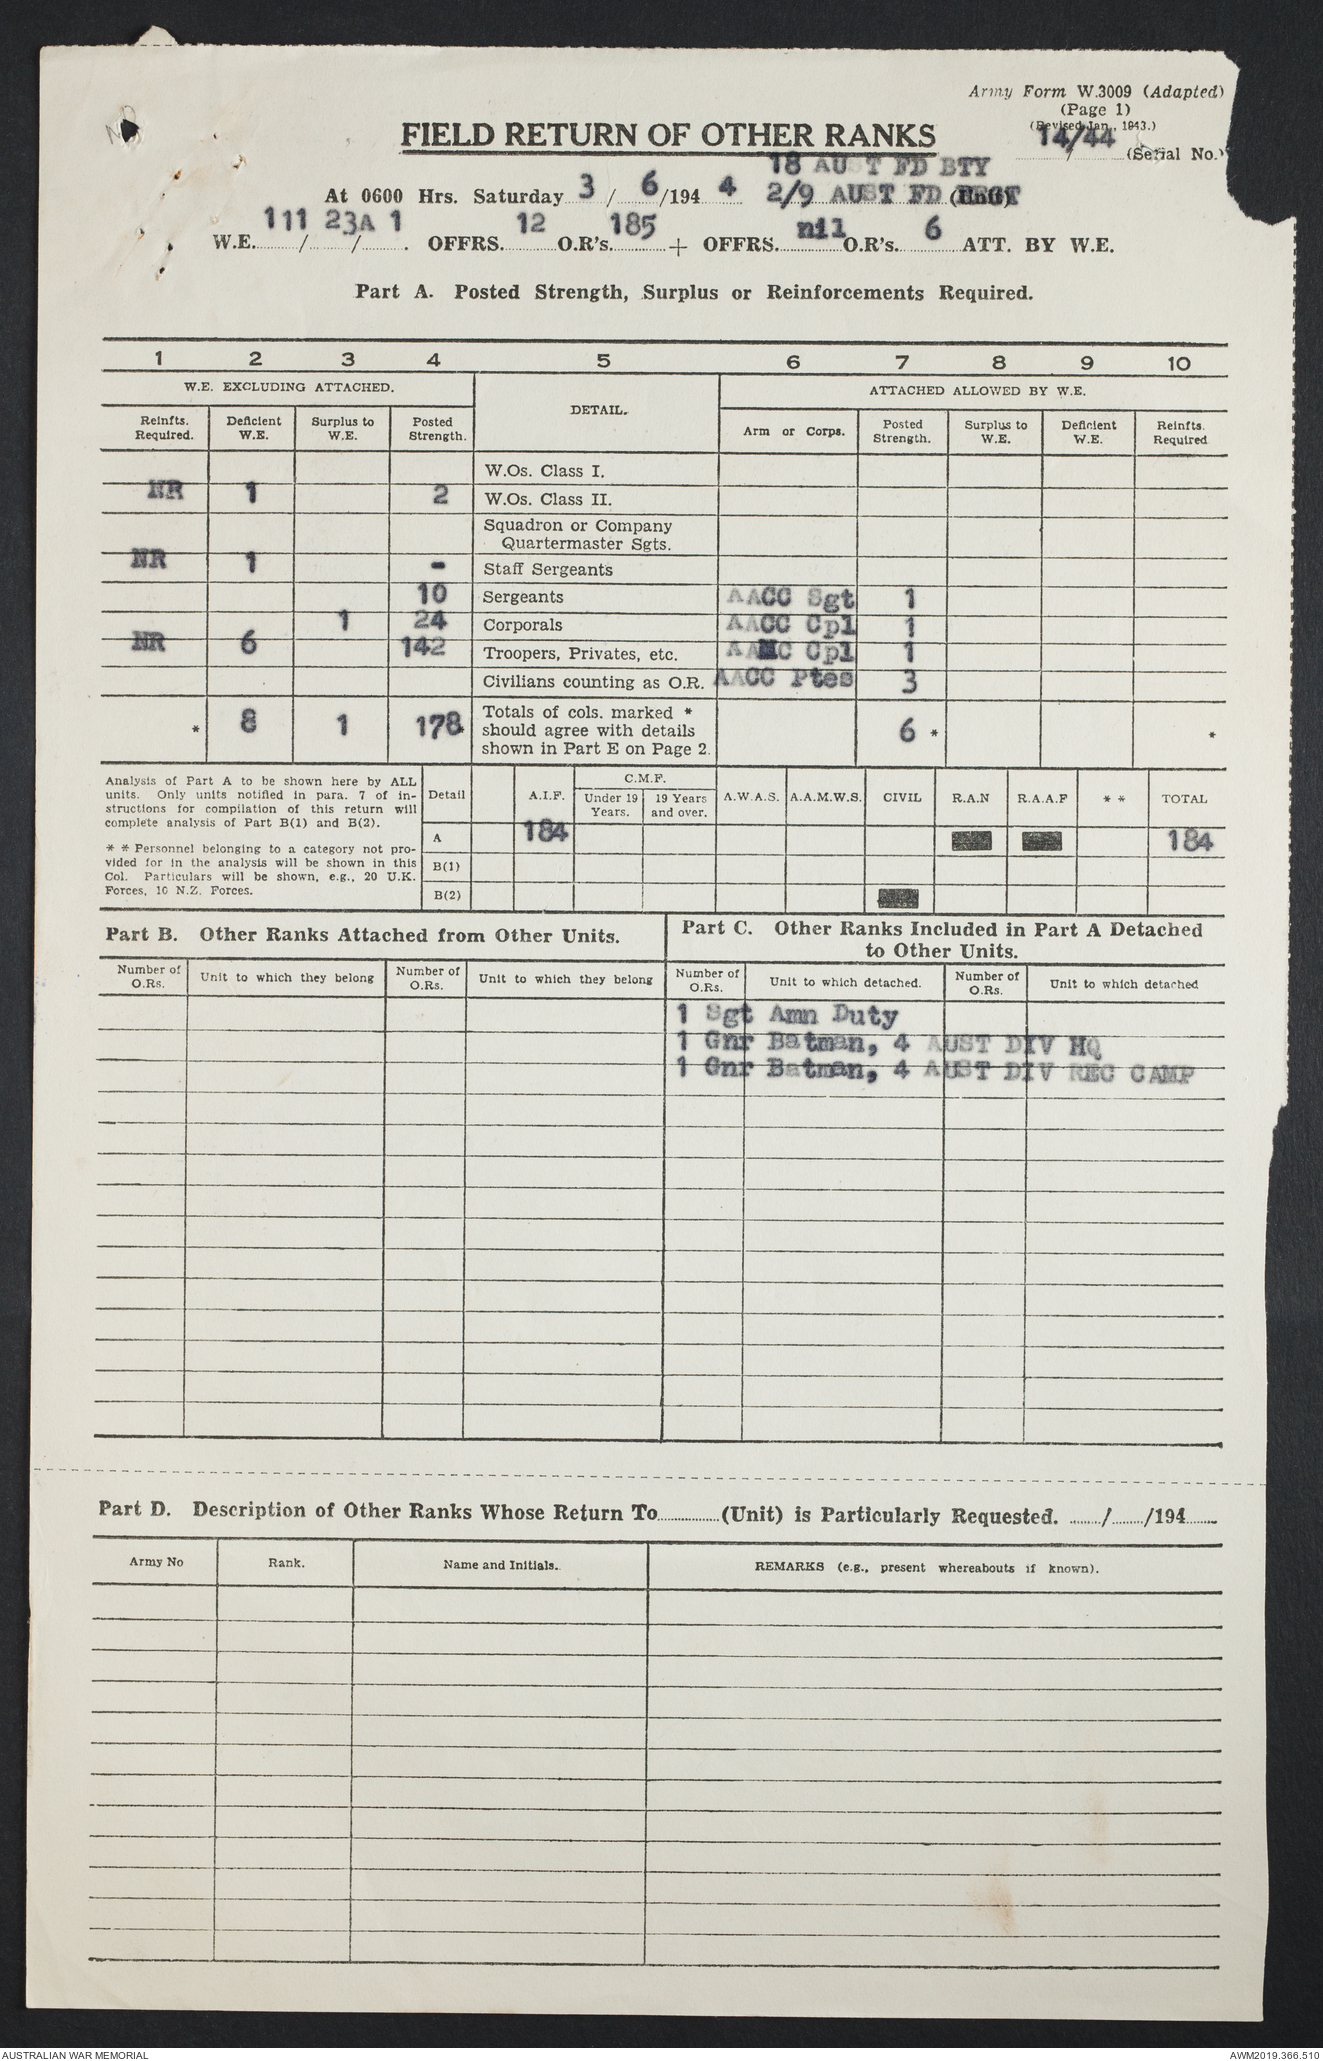 Army Form W.3009 (Adapted)
(Page 1)
(Revised Jan., 1943.)
FIELD RETURN OF OTHER RANKS
14/44 (Serial No.)
18 AUST FD BTY
At 0600 Hrs. Saturday 3 / 6 /194 4 2/9 AUST FD REGT
W.E. 111 / 23A / 1 . OFFRS. 12 O.R's. 185 + OFFRS. nil O.R's. 6 ATT. BY W.E.
Part A. Posted Strength, Surplus or Reinforcements Required.
1 2 3 4 5 6 7 8 9 10
W.E. EXCLUDING ATTACHED. DETAIL. ATTACHED ALLOWED BY W.E.
Reinfts. Required. Deficient W.E. Surplus to W.E. Posted Strength. Arm or Corps. Posted Strength. Surplus to W.E. Deficient W.E. Reinfts. Required
W.Os. Class I.
NR 1 2 W.Os. Class II.
Squadron or Company
Quartermaster Sgts.
NR 1 - Staff Sergeants
10 Sergeants AACC Sgt 1
1 24 Corporals AACC Cpl 1
NR 6 142 Troopers, Privates, etc. AAMC Cpl 1
Civilians counting as O.R. AACC Ptes 3
* 8 1 178 Totals of cols. marked * should agree with details shown in Part E on Page 2. 6 * *
Analysis of Part A to be shown here by ALL
units. Only units notified in para. 7 of in-
structions for compilation of this return will
complete analysis of Part B(1) and B(2).
* * Personnel belonging to a category not pro-
vided for in the analysis will be shown in this
Col. Particulars will be shown, e.g., 20 U.K.
Forces, 10 N.Z. Forces.
Detail A.I.F. C.M.F. Under 19 Years. 19 Years and over. A.W.A.S. A.A.M.W.S. CIVIL R.A.N R.A.A.F * * TOTAL
A 184 184
B(1)
B(2)
Part B. Other Ranks Attached from Other Units.
Number of O.Rs. Unit to which they belong Number of O.Rs. Unit to which they belong
Part C. Other Ranks Included in Part A Detached
to Other Units.
Number of O.Rs. Unit to which detached. Number of O.Rs. Unit to which detached
1 Sgt Amn Duty
1 Gnr Batman, 4 AUST DIV HQ
1 Gnr Batman, 4 AUST DIV REC CAMP
Part D. Description of Other Ranks Whose Return To............(Unit) is Particularly Requested. ....../....../194......
Army No Rank. Name and Initials. REMARKS (e.g., present whereabouts if known).
AUSTRALIAN WAR MEMORIAL AWM2019.366.510